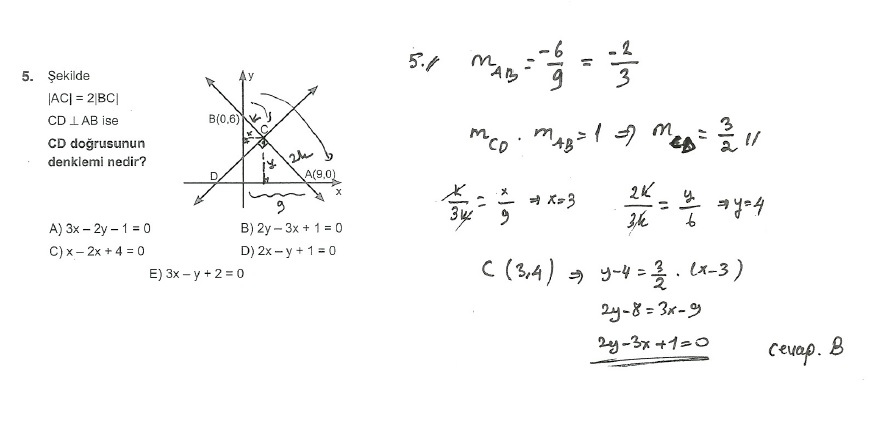 5. Şekilde
|AC| = 2|BC|
CD ⊥ AB ise
CD doğrusunun
denklemi nedir?
y
B(0,6)
k
C
x
y
2k
D
A(9,0)
x
9
A) 3x – 2y – 1 = 0
B) 2y – 3x + 1 = 0
C) x – 2x + 4 = 0
D) 2x – y + 1 = 0
E) 3x – y + 2 = 0
5.// m_AB = -6/9 = -2/3
m_CD . m_AB = 1 ⇒ m_CD = 3/2 //
k/3k = x/9 ⇒ x=3
2k/3k = y/6 ⇒ y=4
C (3,4) ⇒ y-4 = 3/2 . (x-3)
2y-8=3x-9
2y-3x+1=0
cevap. B